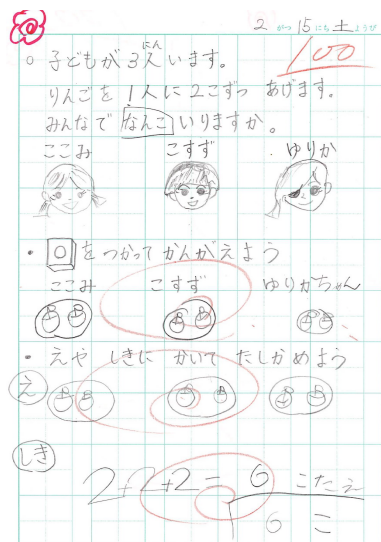 2がつ15にち土ようび
100
○子どもが3人にんいます。
りんごを1人に2こずつあげます。
みんなでなんこいりますか。
ここみ こすず ゆりか
・○をつかってかんがえよう
ここみ こすず ゆりかちゃん
・えやしきにかいてたしかめよう
え
しき
2+2+2=6 こたえ
6こ